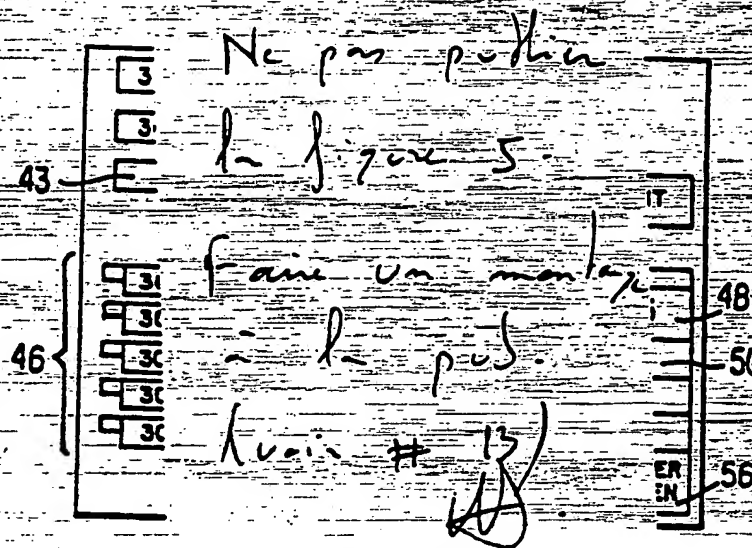 Ne pas publier
la figure 5.
Faire un montage
à la pub.
(voir # 13)
3
3
43
46
30
30
30
30
30
IT
48
50
ER
EN
56